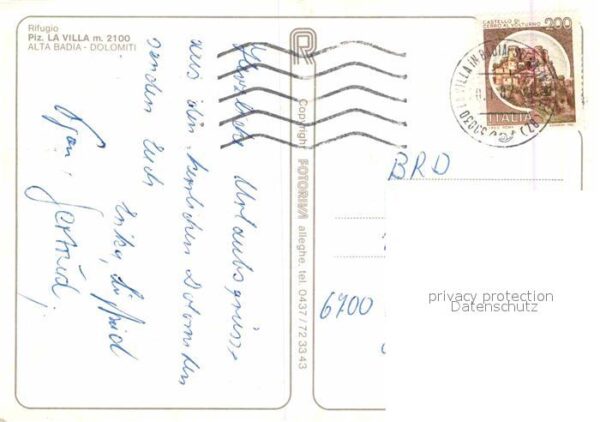 Rifugio
Piz. LA VILLA m. 2100
ALTA BADIA - DOLOMITI
Herzliche Urlaubsgrüsse
aus den herrlichen Dolomiten
senden Euch
Erika, Sigfrid
Gertrud.
Copyright FOTORIVA alleghe. tel. 0437/723343
CASTELLO DI
CERRO AL VOLTURNO
200
ITALIA
LA VILLA IN BADIA
39030
(BZ)
BRD
6700
privacy protection
Datenschutz